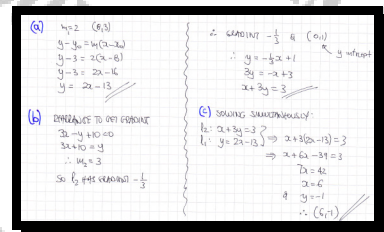 (a) m₁=2 (8,3)
y-y₀=m(x-x₀)
y-3 = 2(x-8)
y-3 = 2x-16
y = 2x-13
(b) REARRANGE TO GET GRADIENT
3x-y+10=0
3x+10=y
∴ m₂=3
SO l₂ HAS GRADIENT -1/3
∴ GRADIENT -1/3 & (0,1)
y intercept
∴ y = -1/3x+1
3y = -x+3
x+3y = 3
(c) SOLVING SIMULTANEOUSLY:
l₂: x+3y=3
l₁: y=2x-13 } ⇒ x+3(2x-13)=3
⇒ x+6x-39=3
7x=42
x=6
& y=-1
∴ (6,-1)